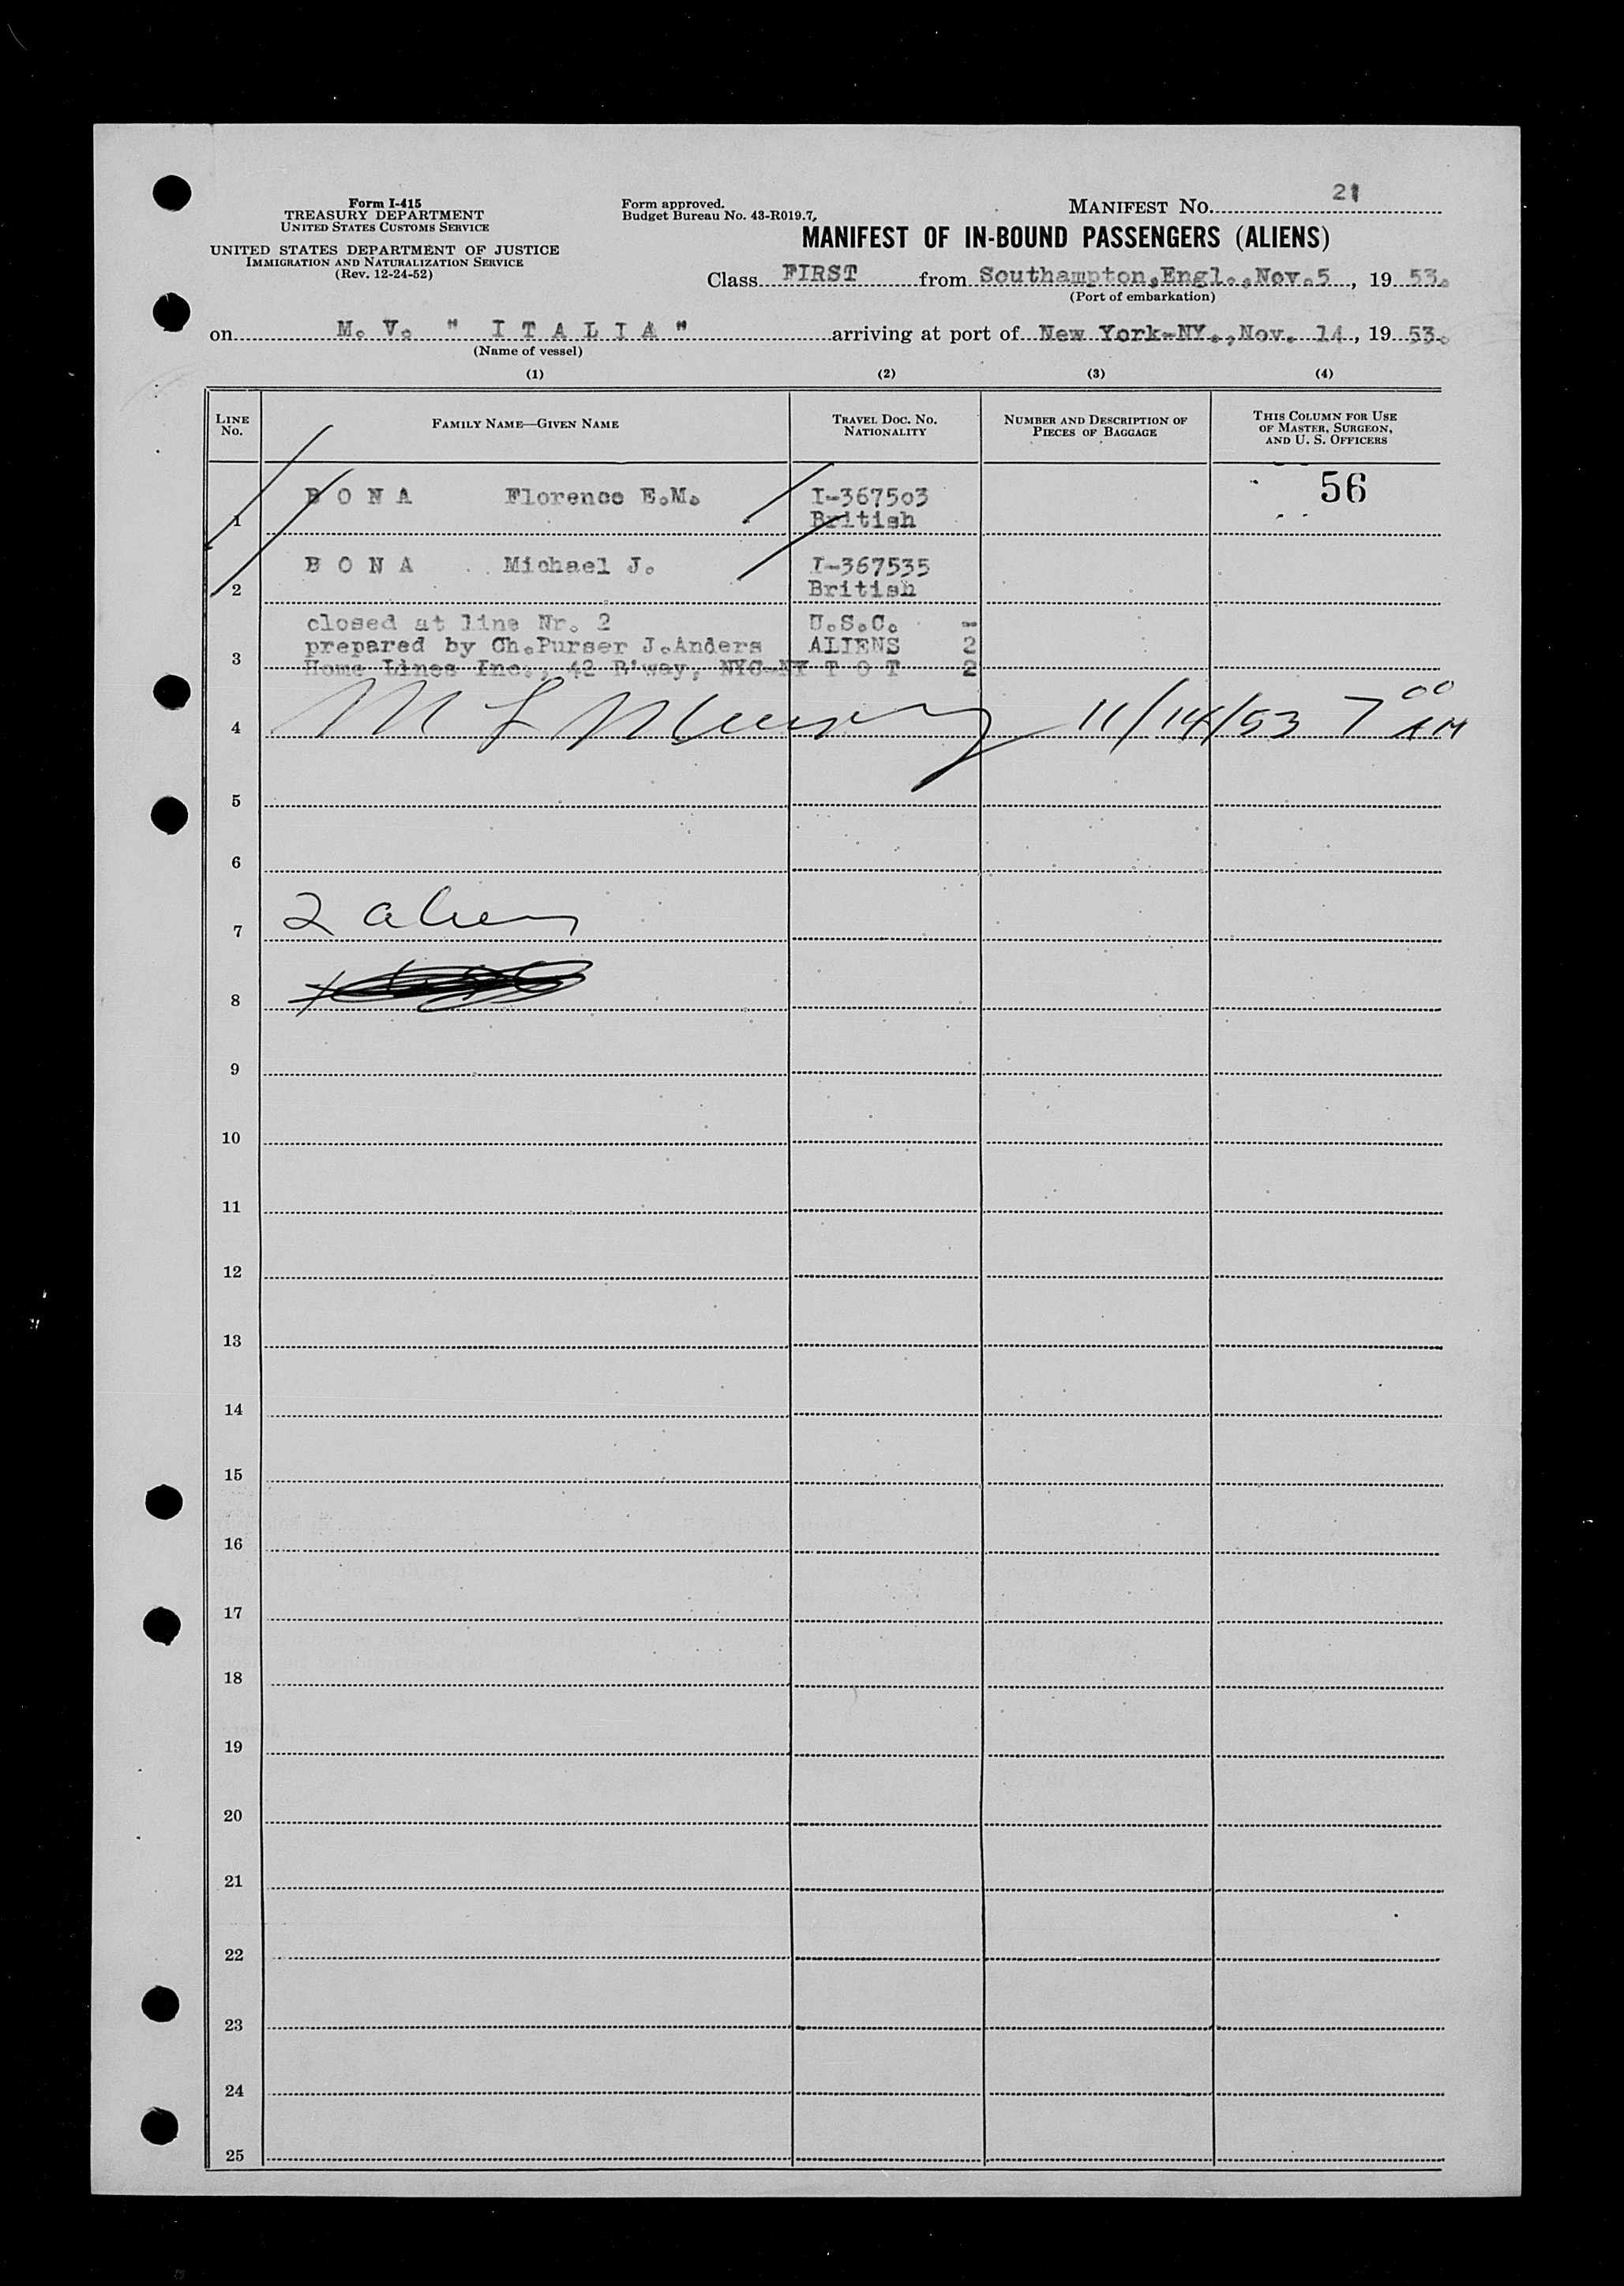 Form I-415
TREASURY DEPARTMENT
UNITED STATES CUSTOMS SERVICE
UNITED STATES DEPARTMENT OF JUSTICE
IMMIGRATION AND NATURALIZATION SERVICE
(Rev. 12-24-52)
Form approved.
Budget Bureau No. 43-R019.7.
MANIFEST NO. 21
MANIFEST OF IN-BOUND PASSENGERS (ALIENS)
Class FIRST from Southampton,Engl.,Nov.5, 19 53.
(Port of embarkation)
on M. V. " I T A L I A " arriving at port of New York-NY.,Nov. 14, 19 53.
(Name of vessel)
(1) (2) (3) (4)
LINE NO. FAMILY NAME—GIVEN NAME TRAVEL DOC. NO. NATIONALITY NUMBER AND DESCRIPTION OF PIECES OF BAGGAGE THIS COLUMN FOR USE OF MASTER, SURGEON, AND U. S. OFFICERS
56
1 B O N A Florence E.M. I-367503
British
2 B O N A Michael J. I-367535
British
closed at line Nr. 2 U.S.C. -
3 prepared by Ch.Purser J.Anders ALIENS 2
Home Lines Inc., 42 B'way, NYC-NY T O T 2
4 M L Murphy 11/14/53 7 00 AM
5
6
7 2 aliens
8
9
10
11
12
13
14
15
16
17
18
19
20
21
22
23
24
25